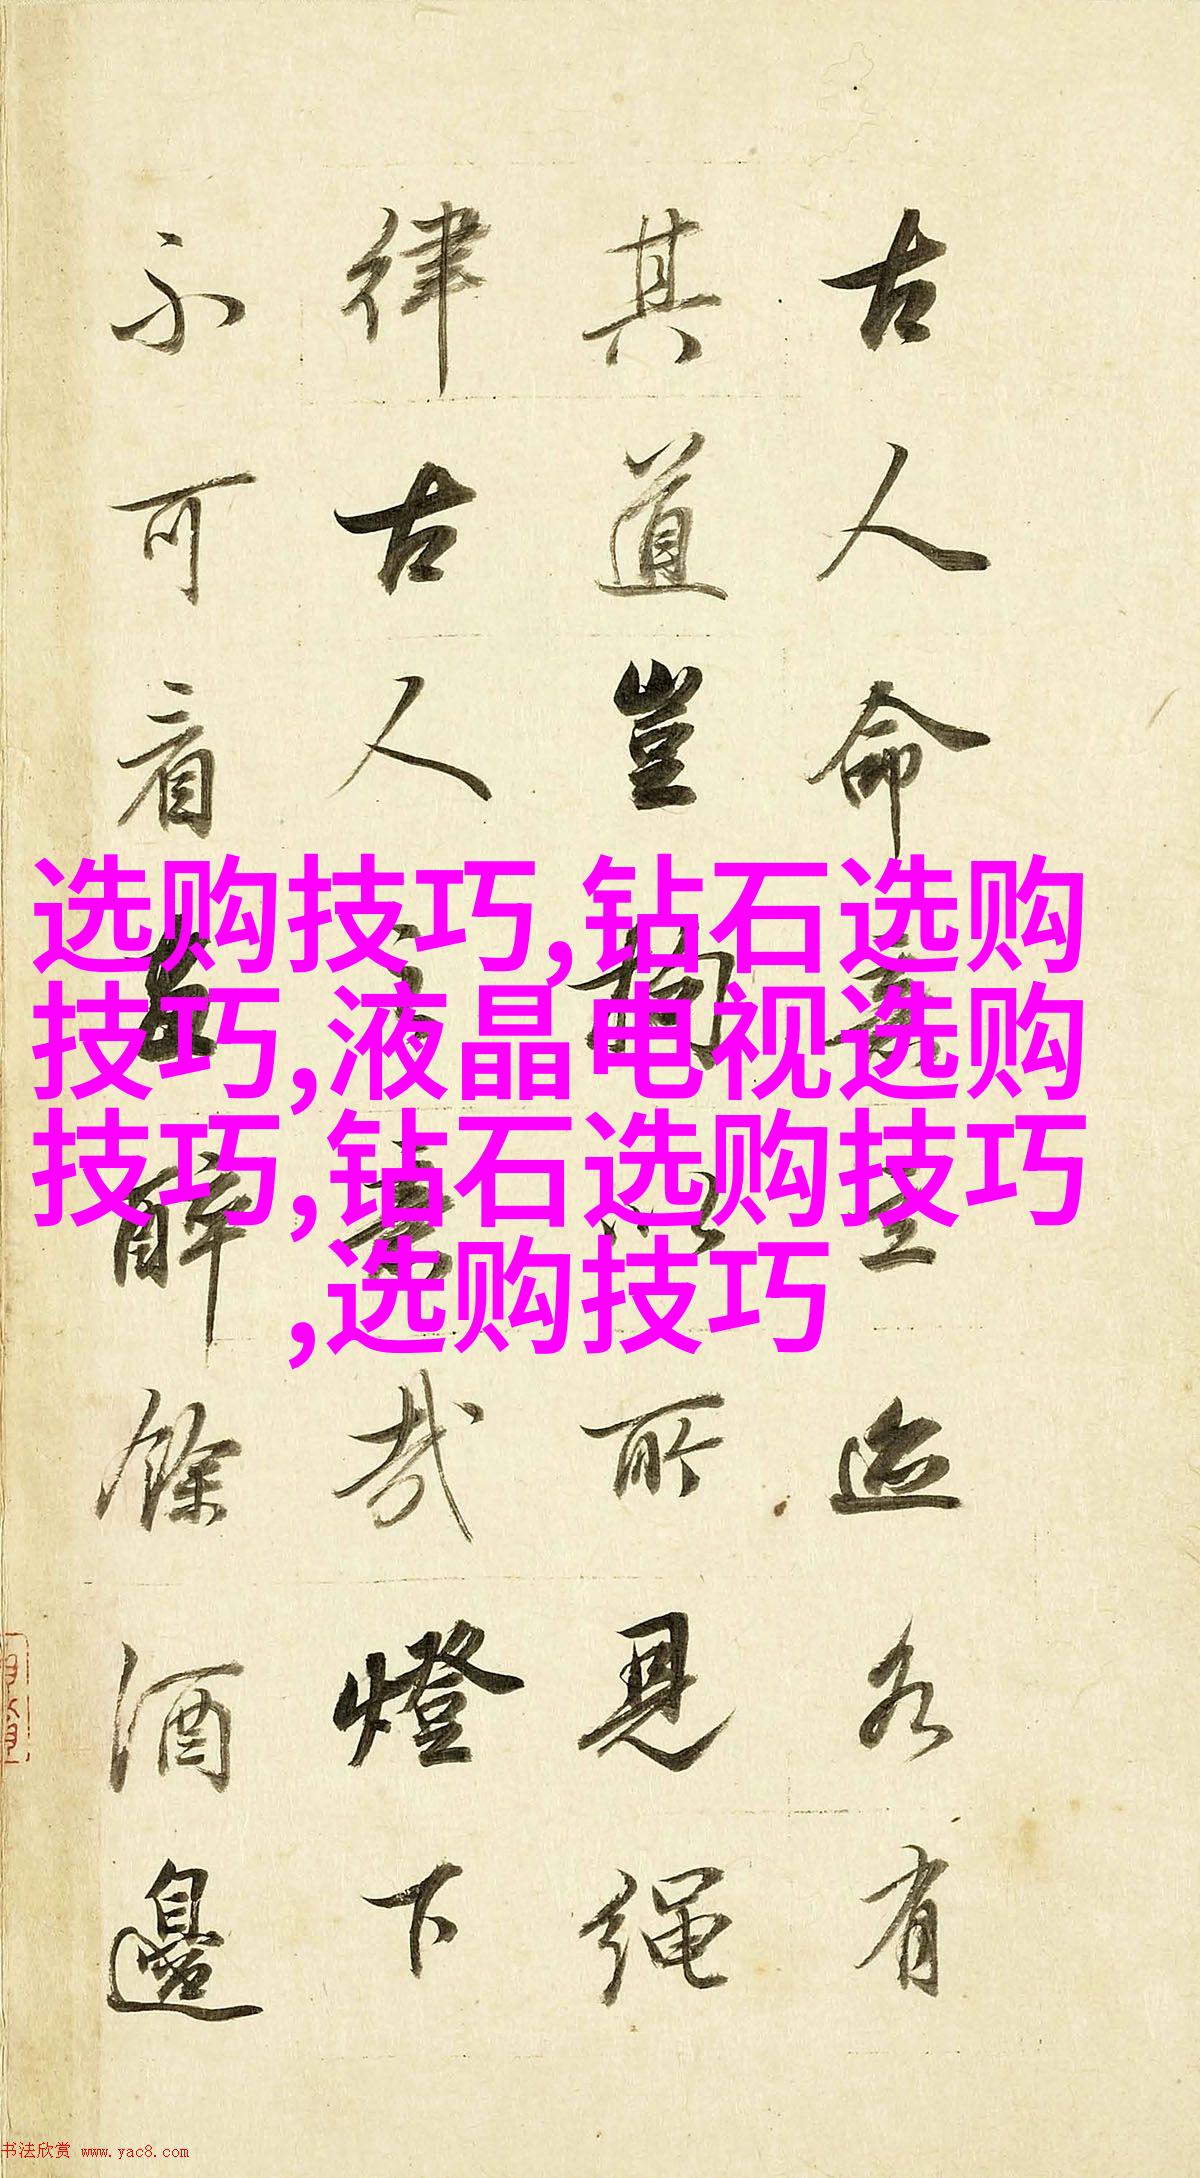 古人命意立迹各有
其道豈拘以所見繩
律古人之意哉燈下
不可看畫醉餘酒邊
选购技巧,钻石选购
技巧,液晶电视选购
技巧,钻石选购技巧
,选购技巧
书法欣赏 www.yac8.com